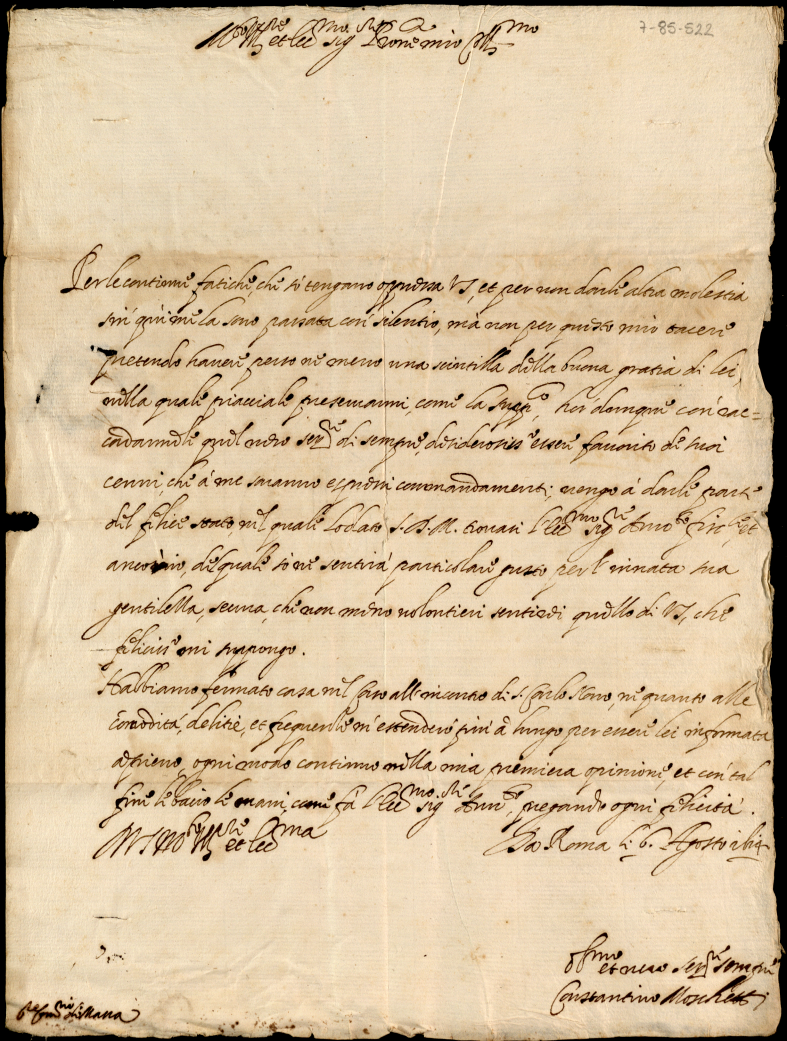 7-85-522
Molt Ill.re et Ecc.mo Sig.re Prone mio Coll.mo
Per le continue fatiche, che sò tengano oppressa VS, et per non darle altra molestia
sin quì me la sono passata con silentio, mà non per questo mio tacere
pretendo havere perso ne meno una scintilla della buona gratia di lei,
nella quale piacciale preservarmi, come la supp.co, hor dunque con rac=
cordarmele quel vero ser.re di sempre, desideroso essere favorito de suoi
cenni, che à me saranno espressi commandamenti; vengo à darle parte
del felice stato, nel quale lodato S.D.M. trovasi l'Ecc.mo Sig.re et
anco io, del quale sò ne sentirà particolare gusto per l'innata sua
gentilella, sicura, che non meno volontieri sentirei quello di VS, che
feliciss.e mi suppongo.
Habbiamo fermato casa nel Corso all'incontro di S. Carlo novo, ne quanto alle
comodità, delitie, et m'estenderò più à lungo per essere lei informata
à pieno, ogni modo continuo nella mia primiera opinione, et con tal
fine le bacio le mani, come fà l'Ecc.mo Sig.re pregando ogni felicità.
Di VS Molt Ill.re et Ecc.ma
Da Roma li 6. Agosto
Obl.mo et vero ser.re sempre
Constantino Moschetti